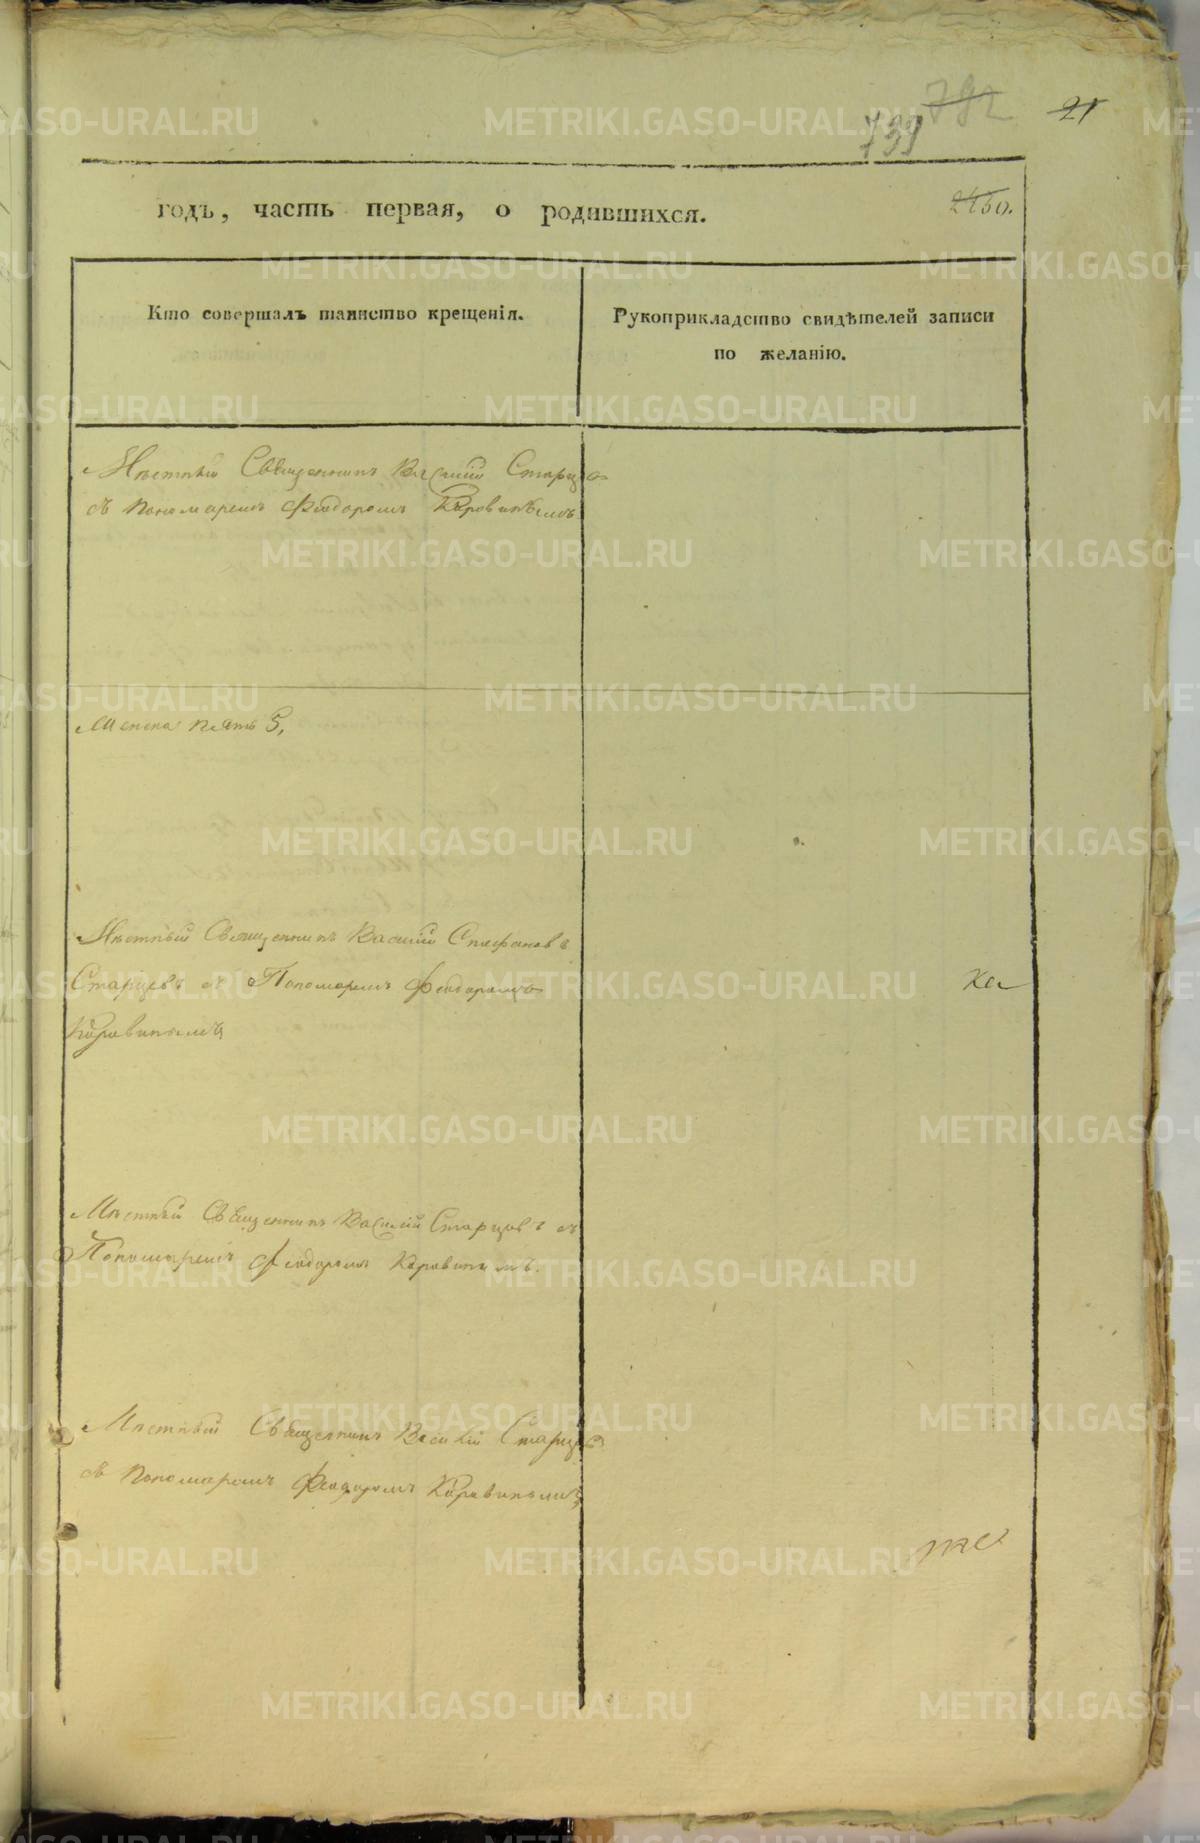 792
21
739
годъ, часть первая, о родившихся.
2450.
Кто совершалъ таинство крещенія.
Рукоприкладство свидѣтелей записи
по желанію.
Мѣстный Священникъ Василій Старцов
съ пономаремъ Феодоромъ Коровинымъ
женска пять 5,
Мѣстный Священникъ Василій Стефановъ
Старцевъ съ Пономаремъ Феодоромъ
Коровинымъ
ка
Мѣстный Священникъ Василій Старцовъ съ
Пономаремъ Феодоромъ Коровинымъ.
Мѣстный Священникъ Василій Старцов
съ пономаремъ Феодоромъ Коровинымъ
METRIKI.GASO-URAL.RU